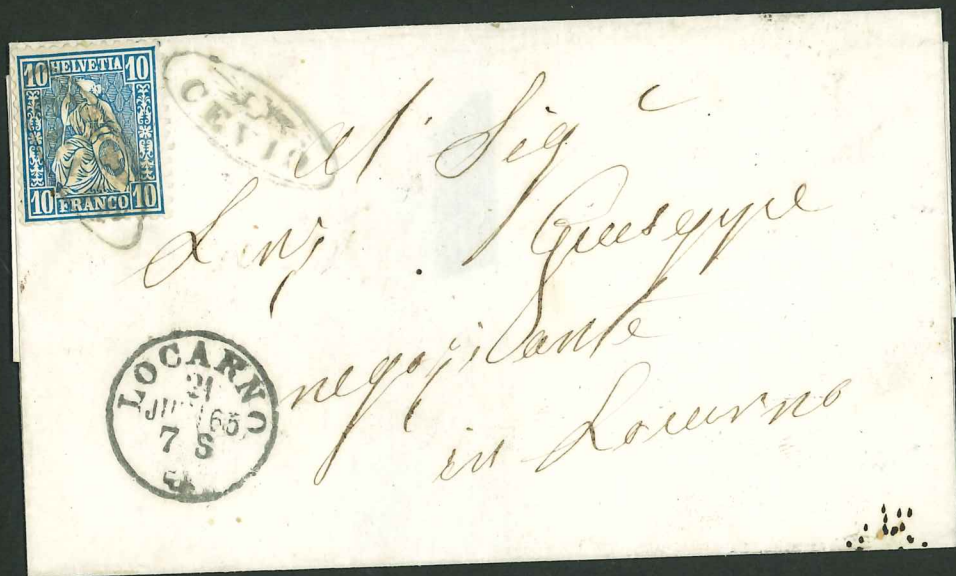 10 HELVETIA 10
10 FRANCO 10
CEVIO
Al Sigr
Giuseppe
negoziante
in Locarno
LOCARNO
21
65
7 S